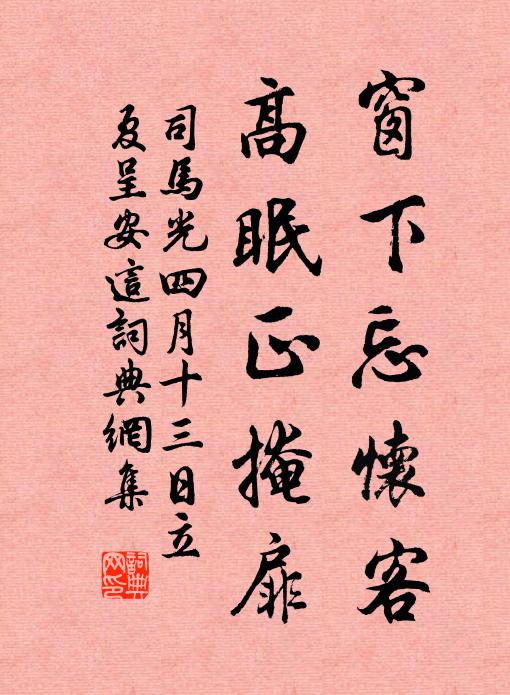 窗下忘懷客
高眠正掩扉
司馬光四月十三日立
夏呈安這詞典網集
詞典網印